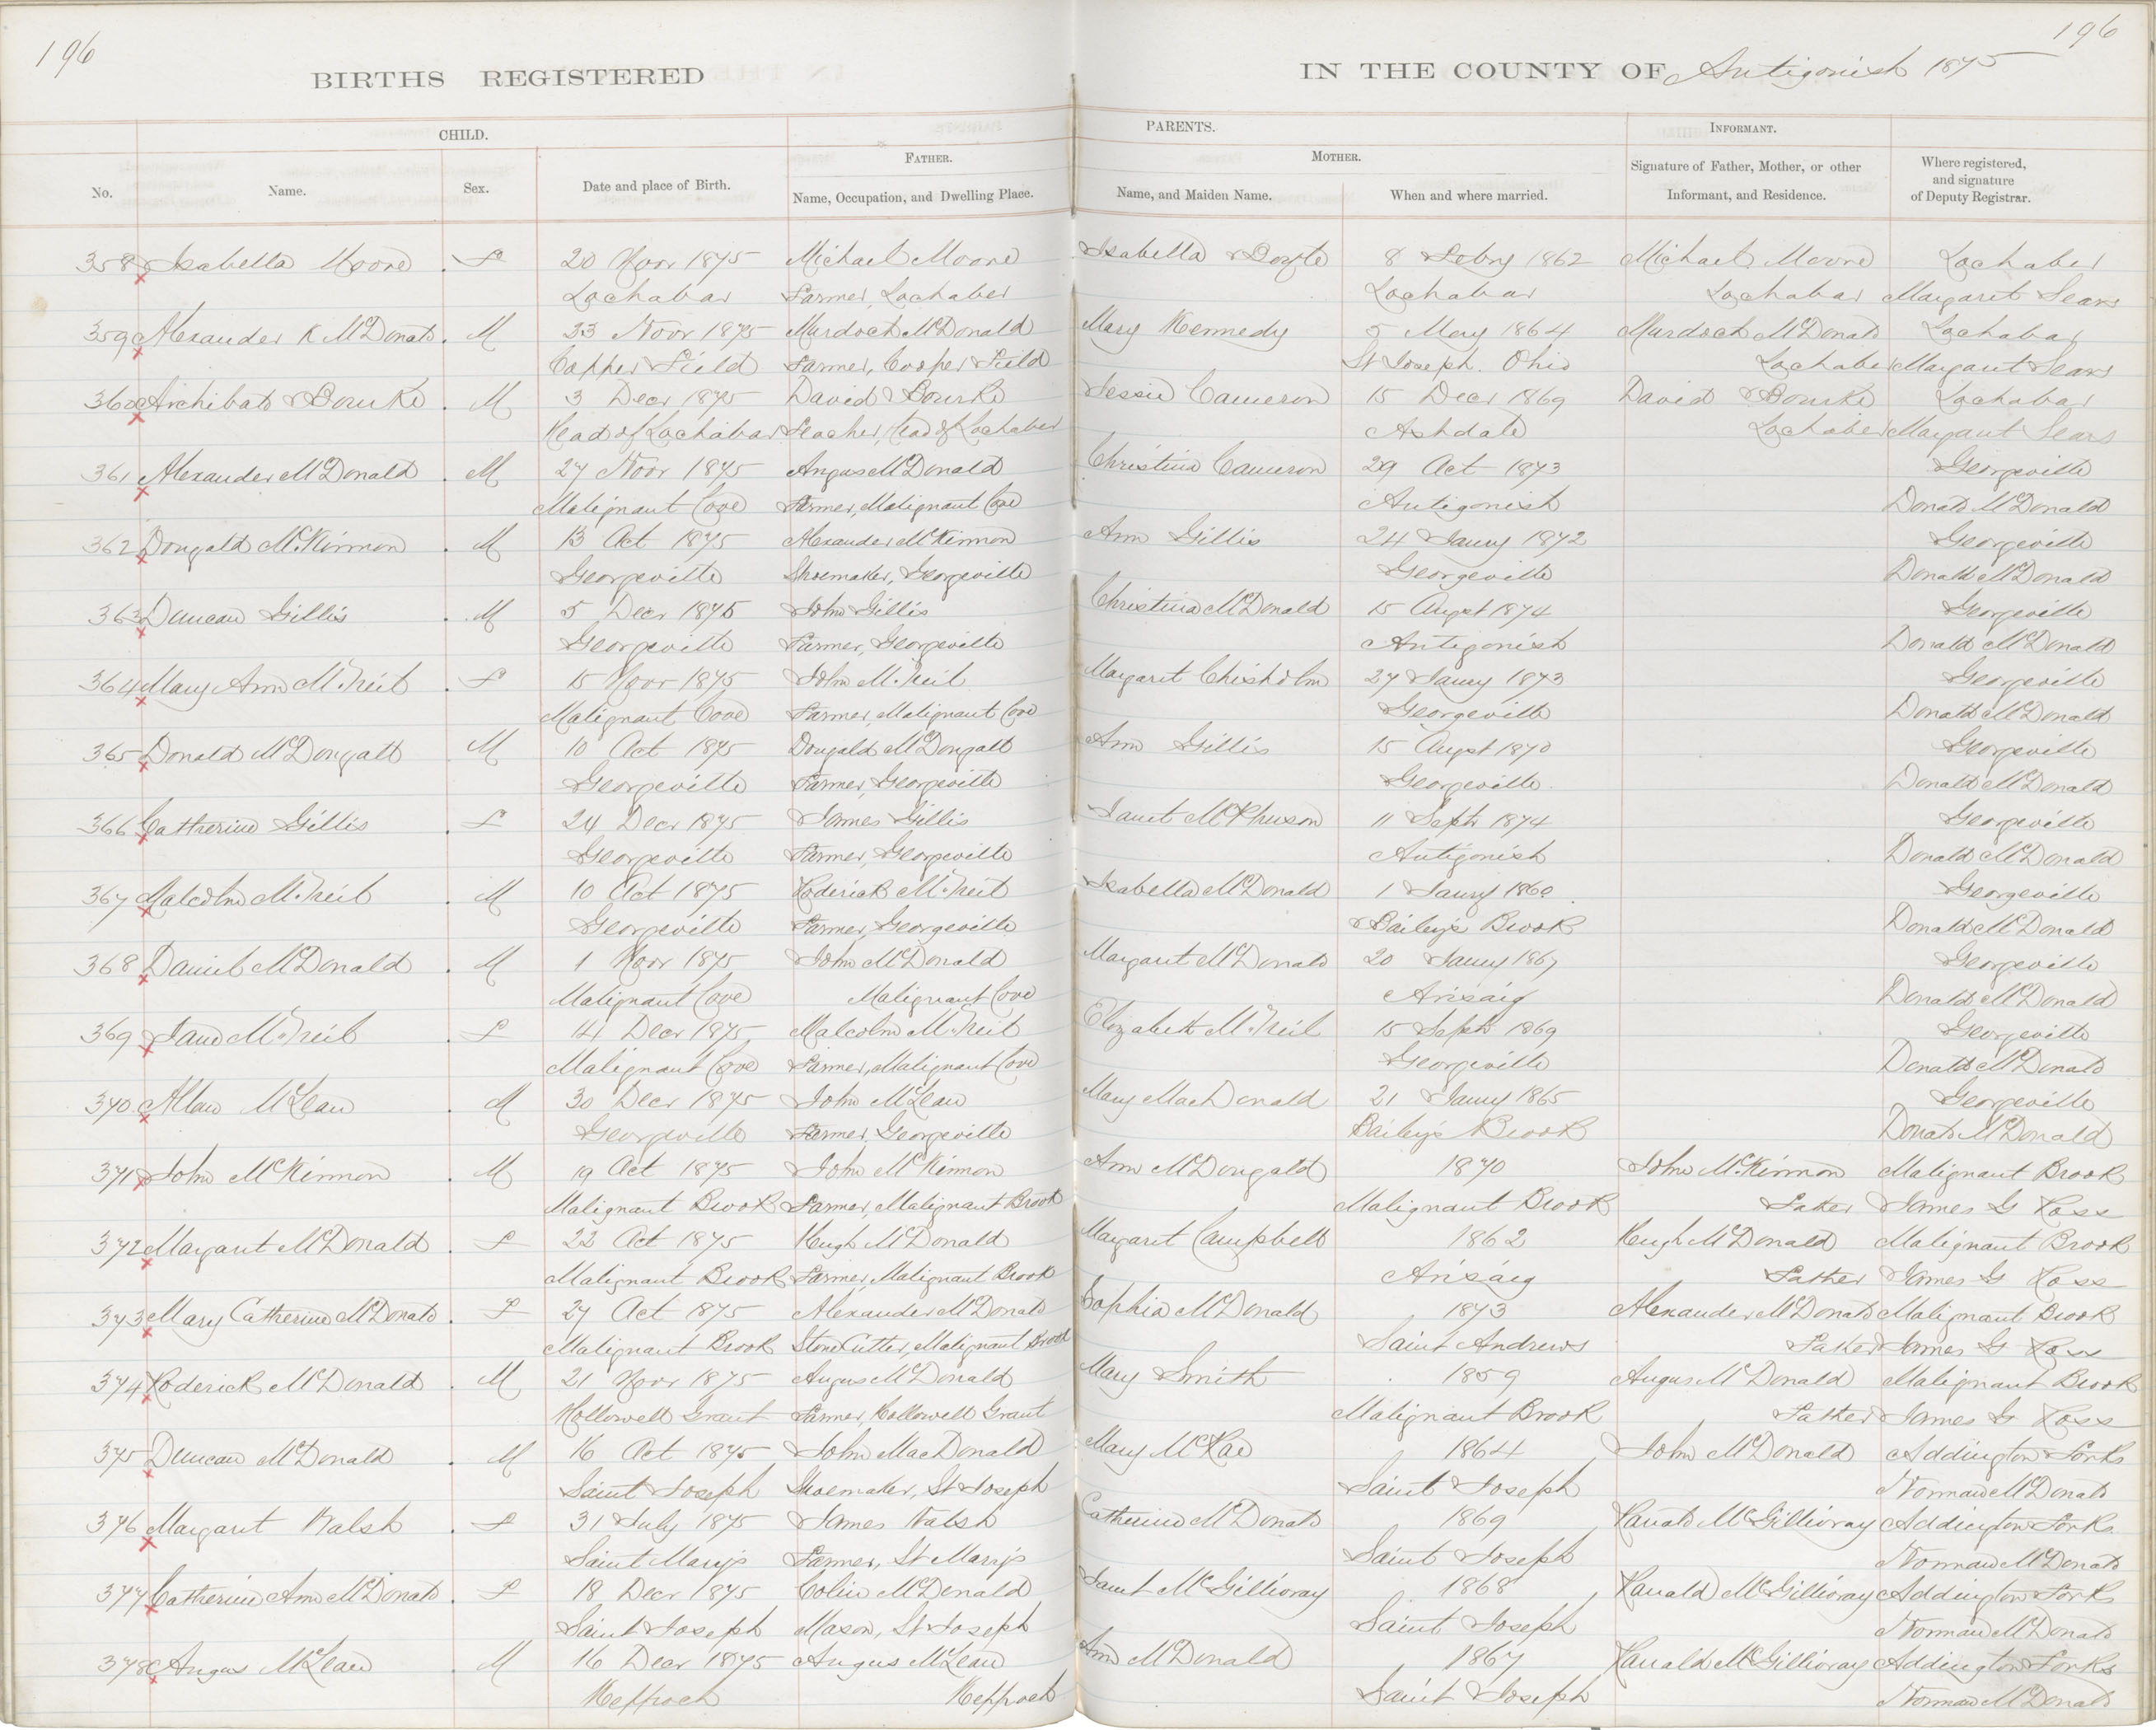 196
196
BIRTHS REGISTERED
IN THE COUNTY OF Antigonish 1875
CHILD.
PARENTS.
INFORMANT.
FATHER.
MOTHER.
No.
Name.
Sex.
Date and place of Birth.
Name, Occupation, and Dwelling Place.
Name, and Maiden Name.
When and where married.
Signature of Father, Mother, or other
Informant, and Residence.
Where registered,
and signature
of Deputy Registrar.
358 Isabella Moore . F 20 Novr 1875 Michael Moore Isabella Doyle 8 Febry 1862 Michael Moore Lochaber
Lochabar Farmer, Lochaber Lochabar Lochabar Margaret Sears
359 Alexander K McDonald . M 23 Novr 1875 Murdoch McDonald Mary Kennedy 5 May 1864 Murdoch McDonald Lochabar
Copper Field Farmer, Cooper Field St Joseph. Ohio Lochaber Margaret Sears
360 Archibald Bourke . M 3 Decr 1875 David Bourke Jessie Cameron 15 Decr 1869 David Bourke Lochabar
Head of Lochabar Teacher, Head of Lochaber Ashdale Lochaber Margaret Sears
361 Alexander McDonald . M 27 Novr 1875 Angus McDonald Christina Cameron 29 Oct 1873 Georgeville
Malignant Cove Farmer, Malignant Cove Antigonish Donald McDonald
362 Dougald McKinnon . M 13 Oct 1875 Alexander McKinnon Ann Gillis 24 Jany 1872 Georgeville
Georgeville Shoemaker, Georgeville Georgeville Donald McDonald
363 Duncan Gillis . M 5 Decr 1875 John Gillis Christina McDonald 15 Augst 1874 Georgeville
Georgeville Farmer, Georgeville Antigonish Donald McDonald
364 Mary Ann McNeil . F 15 Novr 1875 John McNeil Margaret Chisholm 27 Jany 1873 Georgeville
Malignant Cove Farmer, Malignant Cove Georgeville Donald McDonald
365 Donald McDougall M 10 Oct 1875 Dougald McDougall Ann Gillis 15 Augst 1870 Georgeville
Georgeville Farmer, Georgeville Georgeville. Donald McDonald
366 Catherine Gillis . F 24 Decr 1875 James Gillis Janet McPherson 11 Septr 1874 Georgeville
Georgeville Farmer, Georgeville Antigonish Donald McDonald
367 Malcolm McNeil . M 10 Oct 1875 Roderick McNeil Isabella McDonald 1 Jany 1860 Georgeville
Georgeville Farmer, Georgeville Bailey's Brook Donald McDonald
368 Daniel McDonald . M 1 Novr 1875 John McDonald Margaret McDonald 20 Jany 1867 Georgeville
Malignant Cove Malignant Cove Arisaig Donald McDonald
369 Jane McNeil . F 14 Decr 1875 Malcolm McNeil Elizabeth McNeil 15 Septr 1869 Georgeville
Malignant Cove Farmer, Malignant Cove Georgeville Donald McDonald
370 Allan McLean . M 30 Decr 1875 John McLean Mary MacDonald 21 Jany 1865 Georgeville
Georgeville Farmer, Georgeville Bailey's Brook Donald McDonald
371 John McKinnon . M 19 Oct 1875 John McKinnon Ann McDougald 1870 John McKinnon Malignant Brook
Malignant Brook Farmer, Malignant Brook Malignant Brook Father James G Ross
372 Margaret McDonald . F 22 Oct 1875 Hugh McDonald Margaret Campbell 1862 Hugh McDonald Malignant Brook
Malignant Brook Farmer, Malignant Brook Arisaig Father James G Ross
373 Mary Catherine McDonald . F 27 Oct 1875 Alexander McDonald Sophia McDonald 1873 Alexander McDonald Malignant Brook
Malignant Brook Stone Cutter, Malignant Brook Saint Andrews Father James G Ross
374 Roderick McDonald . M 21 Novr 1875 Angus McDonald Mary Smith 1859 Angus McDonald Malignant Brook
Hollowell Grant Farmer, Hollowell Grant Malignant Brook Father James G Ross
375 Duncan McDonald . M 16 Oct 1875 John MacDonald Mary McRae 1864 John McDonald Addington Forks
Saint Joseph Shoemaker, St Joseph Saint Joseph Norman McDonald
376 Margaret Walsh . F 31 July 1875 James Walsh Catherine McDonald 1869 Ranald McGillivray Addington Forks
Saint Mary's Farmer, St Mary's Saint Joseph Norman McDonald
377 Catherine Ann McDonald . F 18 Decr 1875 Colin McDonald Janet McGillivray 1868 Ranald McGillivray Addington Forks
Saint Joseph Mason, St Joseph Saint Joseph Norman McDonald
378 Angus McLean M 16 Decr 1875 Angus McLean Ann McDonald 1867 Ranald McGillivray Addington Forks
Keppoch Keppoch Saint Joseph Norman McDonald